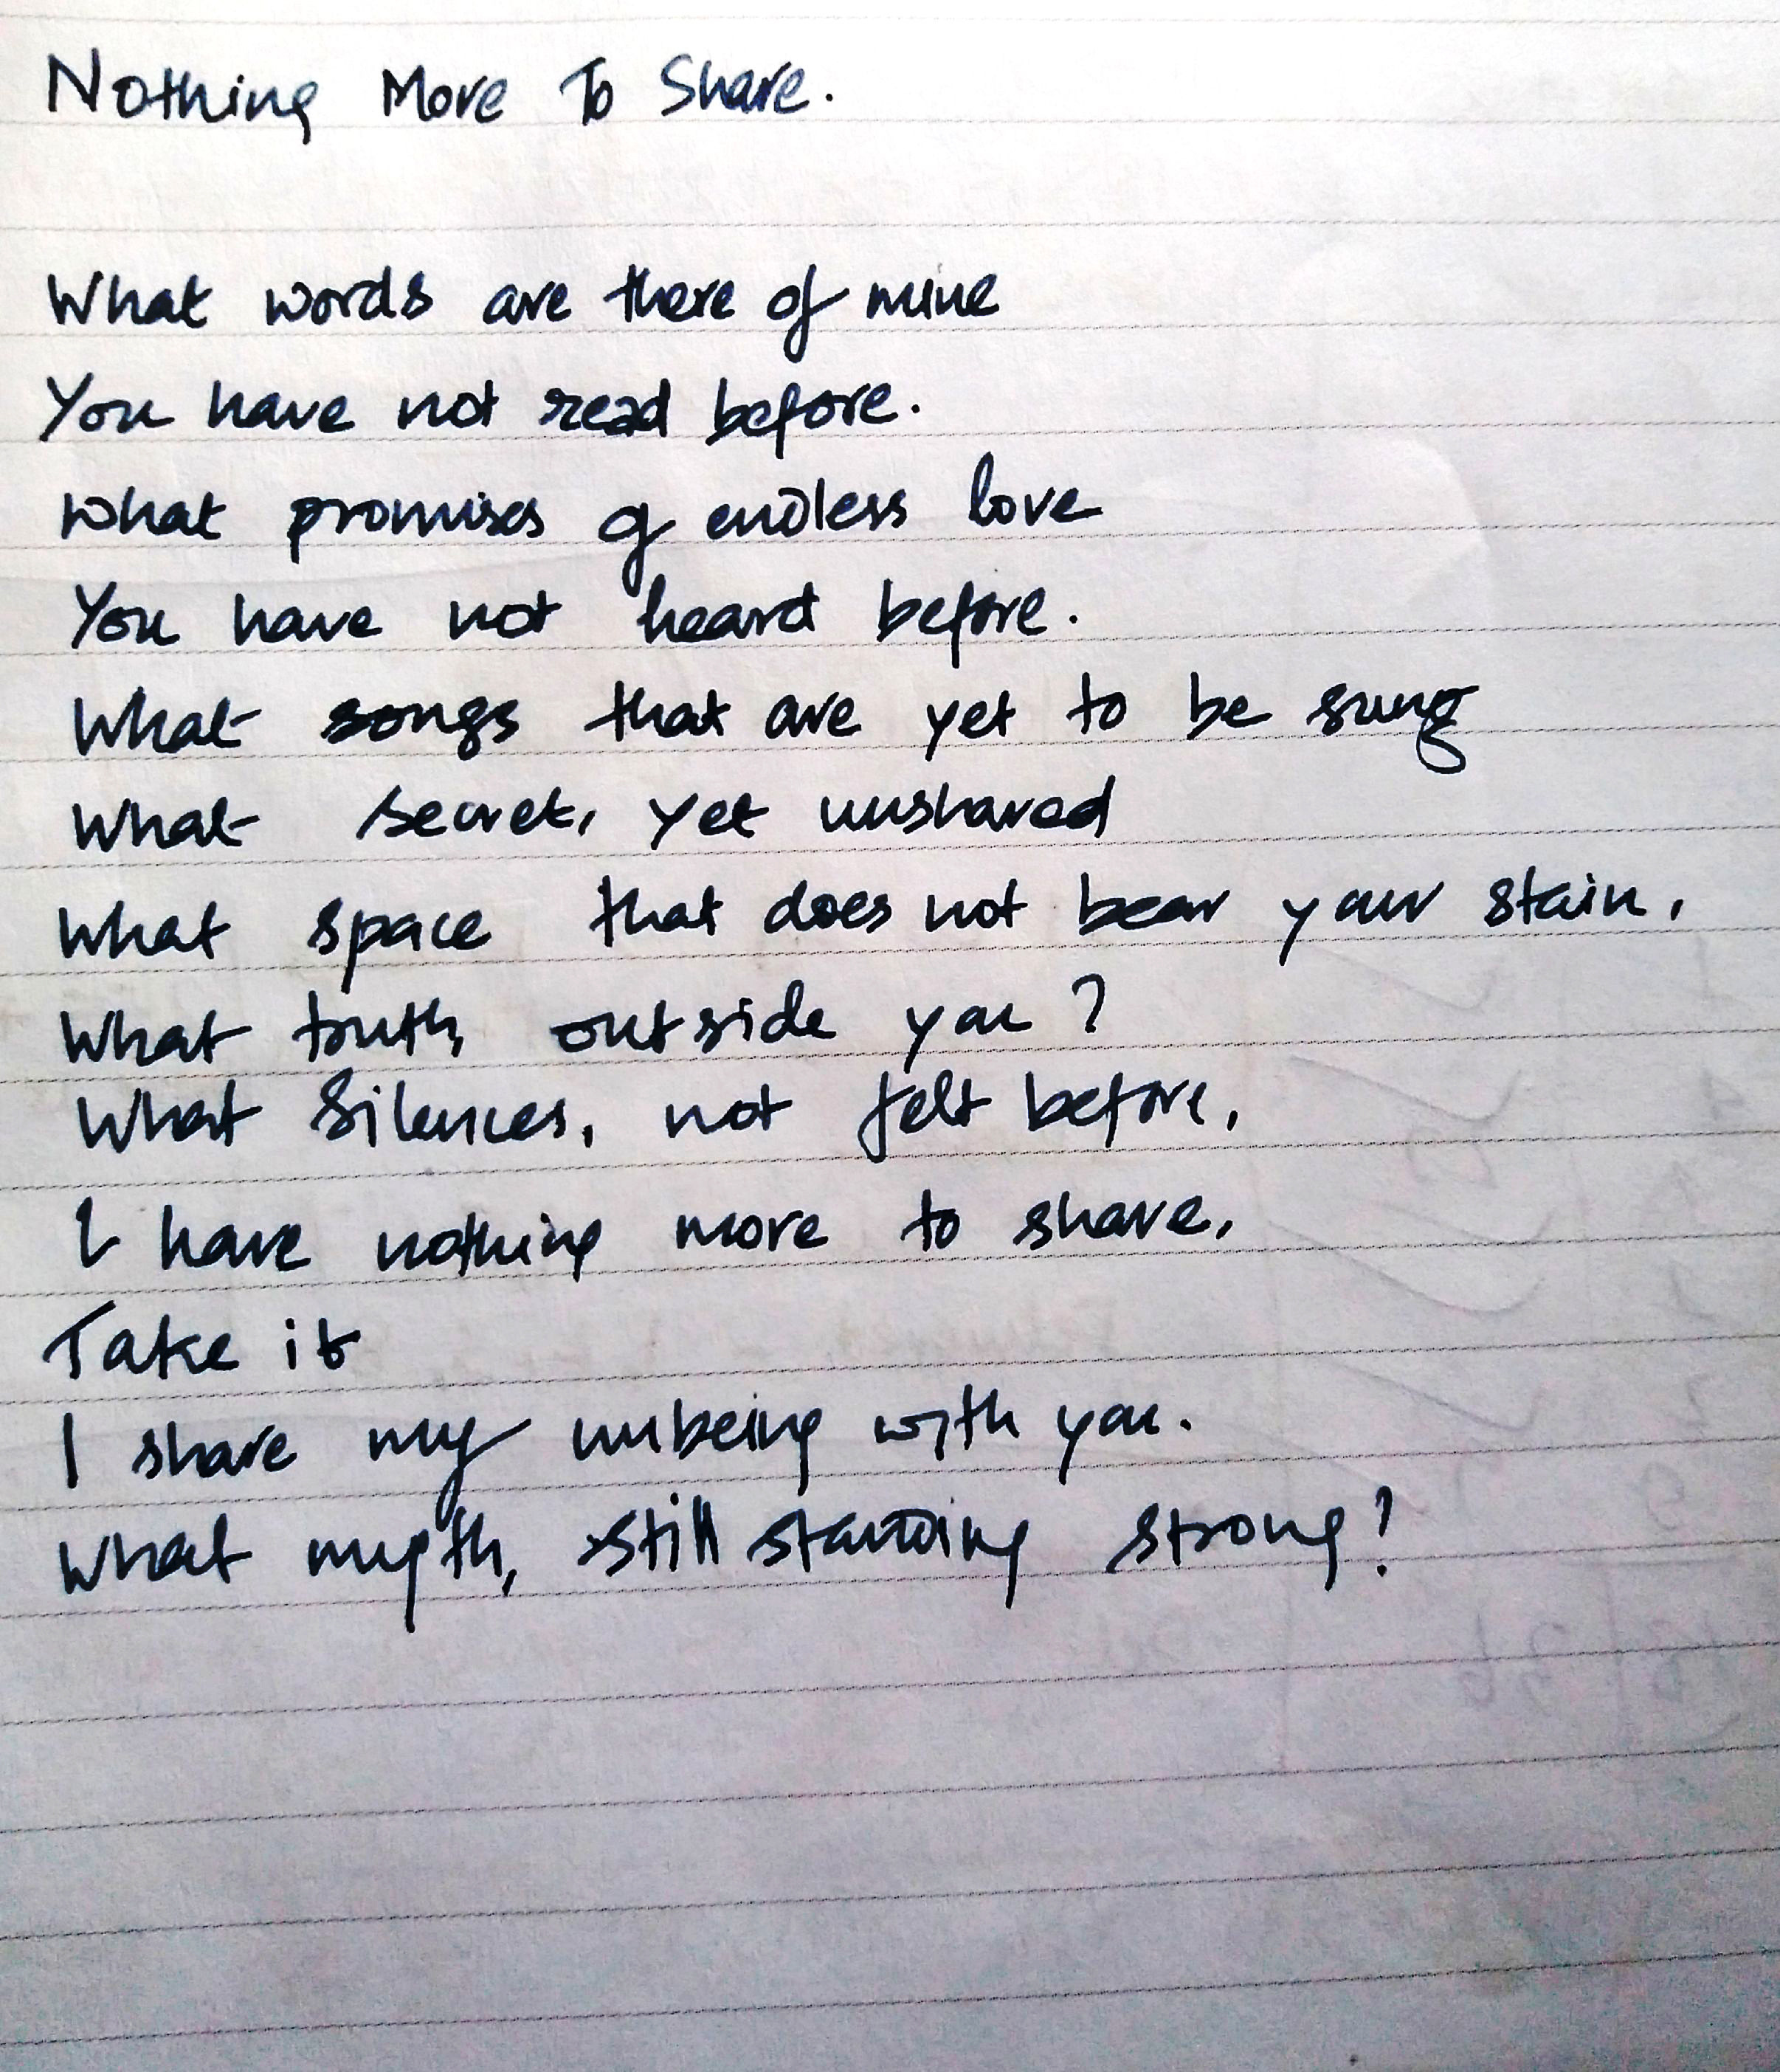 Nothing More To Share.
What words are there of mine
You have not read before.
What promises of endless love
You have not heard before.
What songs that are yet to be sung
What secret, yet unshared
What space that does not bear your stain,
What truth, outside you?
What Silences, not felt before,
I have nothing more to share,
Take it
I share my unbeing with you.
What myth, still standing strong?